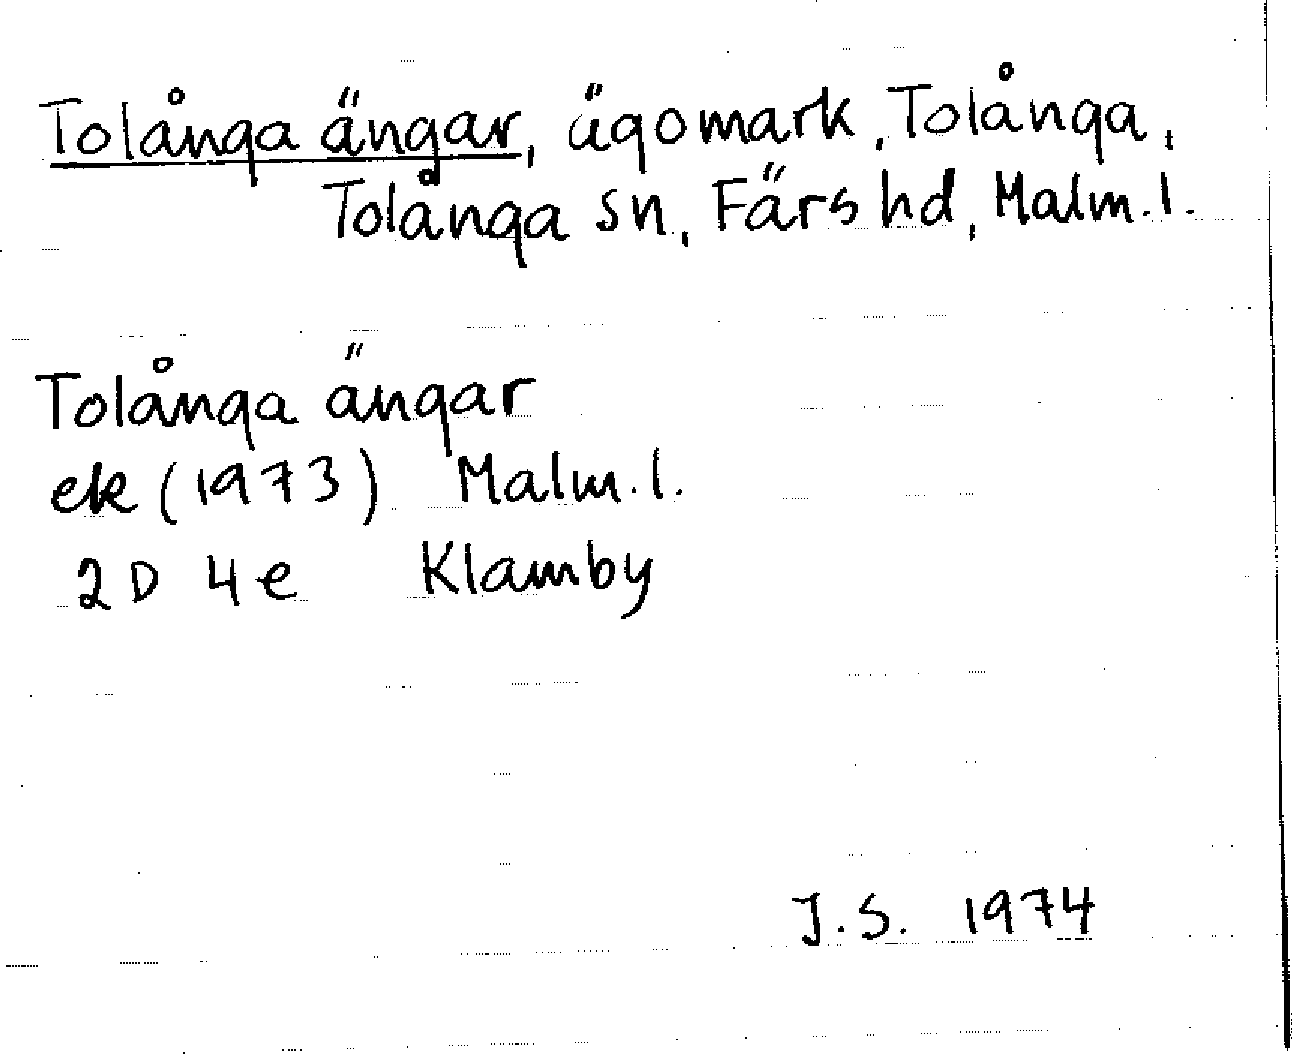 Tolånga ängar, ägomark, Tolånga,
Tolånga sn, Färs hd, Malm.l.
Tolånga ängar
ek (1973) Malm.l.
2D 4e Klamby
J.S. 1974